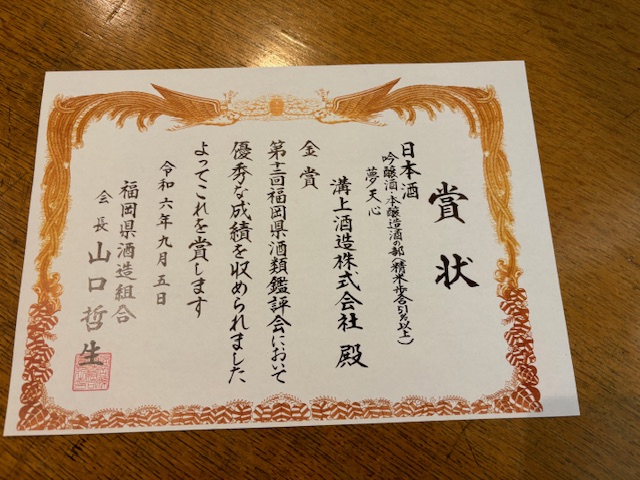 賞状
日本酒
吟醸酒・本醸造酒の部(精米歩合51%以上)
夢天心
溝上酒造株式会社 殿
金賞
第十二回福岡県酒類鑑評会において
優秀な成績を収められました
よってこれを賞します
令和六年九月五日
福岡県酒造組合
会長 山口哲生